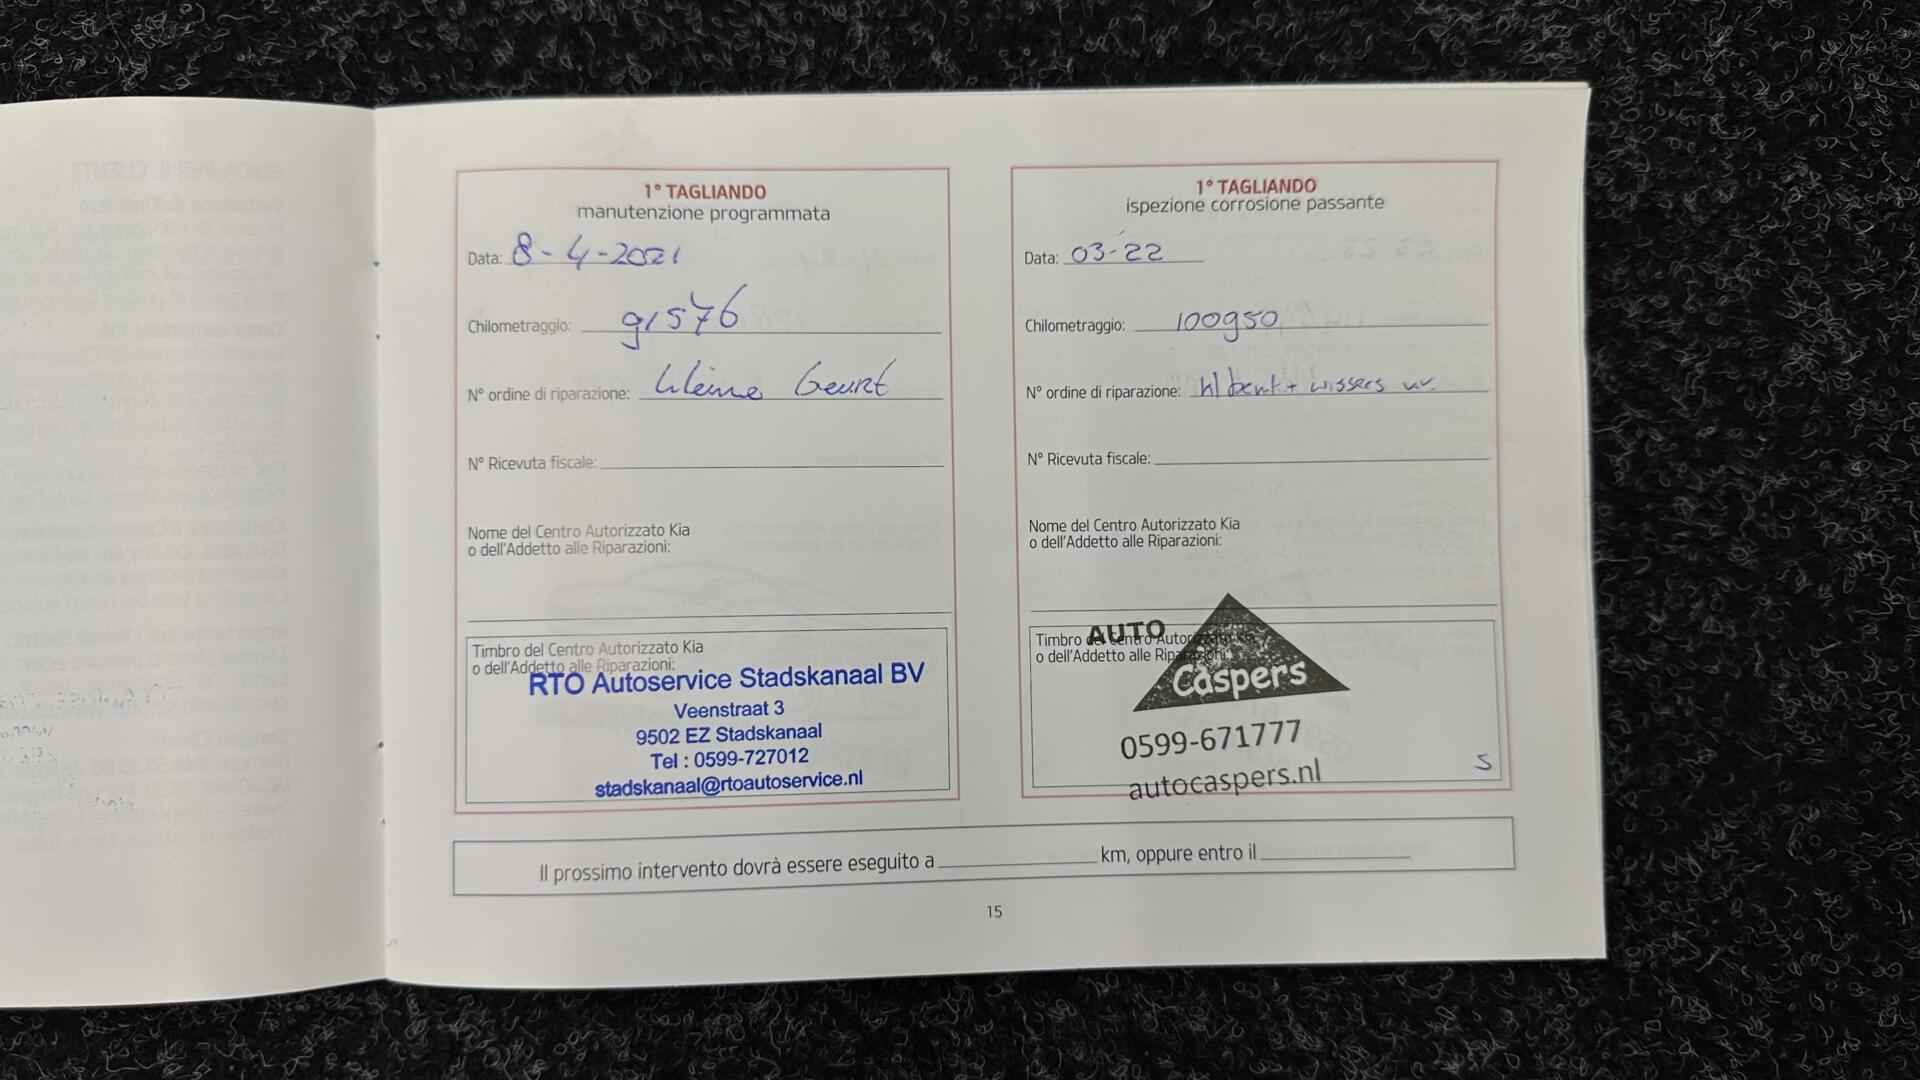 1° TAGLIANDO
manutenzione programmata
Data: 8-4-2021
Chilometraggio: 91576
N° ordine di riparazione: kleine beurt
N° Ricevuta fiscale:
Nome del Centro Autorizzato Kia
o dell'Addetto alle Riparazioni:
Timbro del Centro Autorizzato Kia
o dell'Addetto alle Riparazioni:
RTO Autoservice Stadskanaal BV
Veenstraat 3
9502 EZ Stadskanaal
Tel : 0599-727012
stadskanaal@rtoautoservice.nl
1° TAGLIANDO
ispezione corrosione passante
Data: 03-22
Chilometraggio: 100950
N° ordine di riparazione: + wissers
N° Ricevuta fiscale:
Nome del Centro Autorizzato Kia
o dell'Addetto alle Riparazioni:
Timbro del Centro Autorizzato Kia
o dell'Addetto alle Riparazioni:
AUTO
Caspers
0599-671777
autocaspers.nl
S
Il prossimo intervento dovrà essere eseguito a km, oppure entro il
15